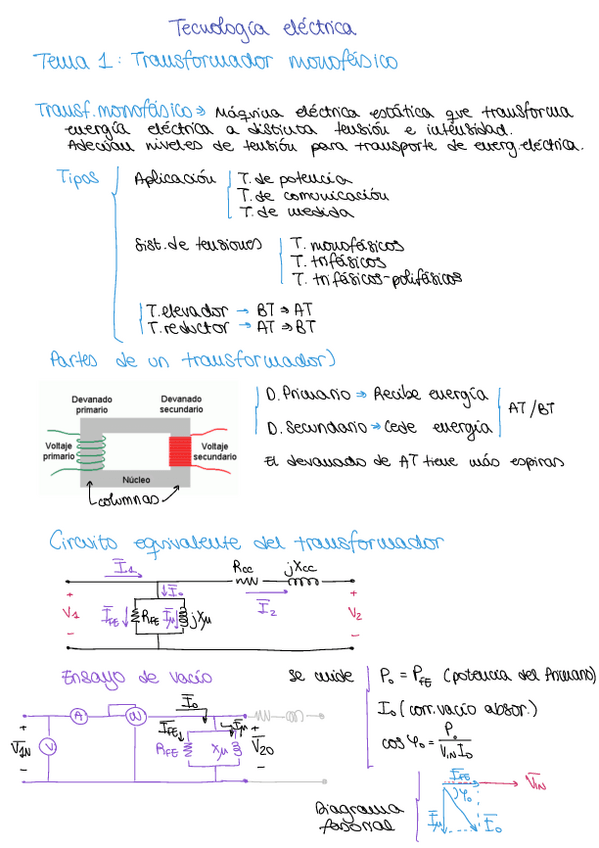 Tecnología eléctrica
Tema 1: Transformador monofásico
Transf. monofásico ⇒ Máquina eléctrica estática que transforma
energía eléctrica a distinta tensión e intensidad.
Adecúan niveles de tensión para transporte de energ. eléctrica.
Tipos
Aplicación
T. de potencia
T. de comunicación
T. de medida
Sist. de tensiones
T. monofásicos
T. trifásicos
T. trifásicos-polifásicos
T. elevador → BT ⇒ AT
T. reductor → AT ⇒ BT
Partes de un transformador)
Devanado primario
Devanado secundario
Voltaje primario
Voltaje secundario
Núcleo
columnas
D. Primario ⇒ Recibe energía
D. Secundario ⇒ Cede energía
AT/BT
El devanado de AT tiene más espiras
Circuito equivalente del transformador
I̅1 Rcc jXcc
I̅o I̅2
+ V1 - I̅FE RFE I̅μ jXμ + V2 -
Ensayo de vacío
A W I̅o
+ V̅1N - V I̅FE RFE Xμ I̅μ + V̅20 -
se mide
Po = PFE (potencia del Primario)
Io (corr. vacío absor.)
cos φo = Po / V1N Io
Diagrama fasorial
I̅FE V̅1N
φo
I̅μ I̅o